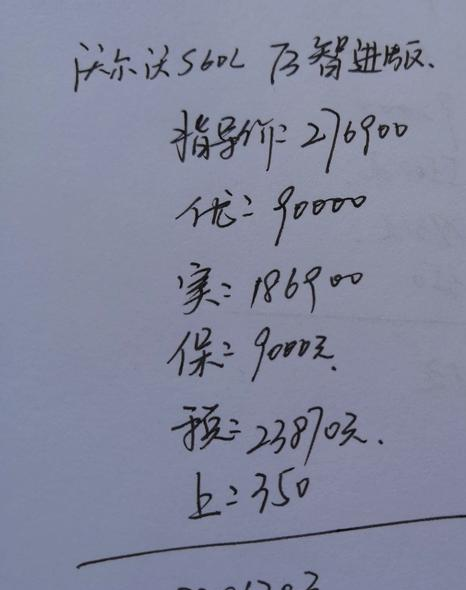 沃尔沃S60L T3智进版.
指导价:276900
优:90000
实:186900
保:9000元.
预:23870元.
上:350